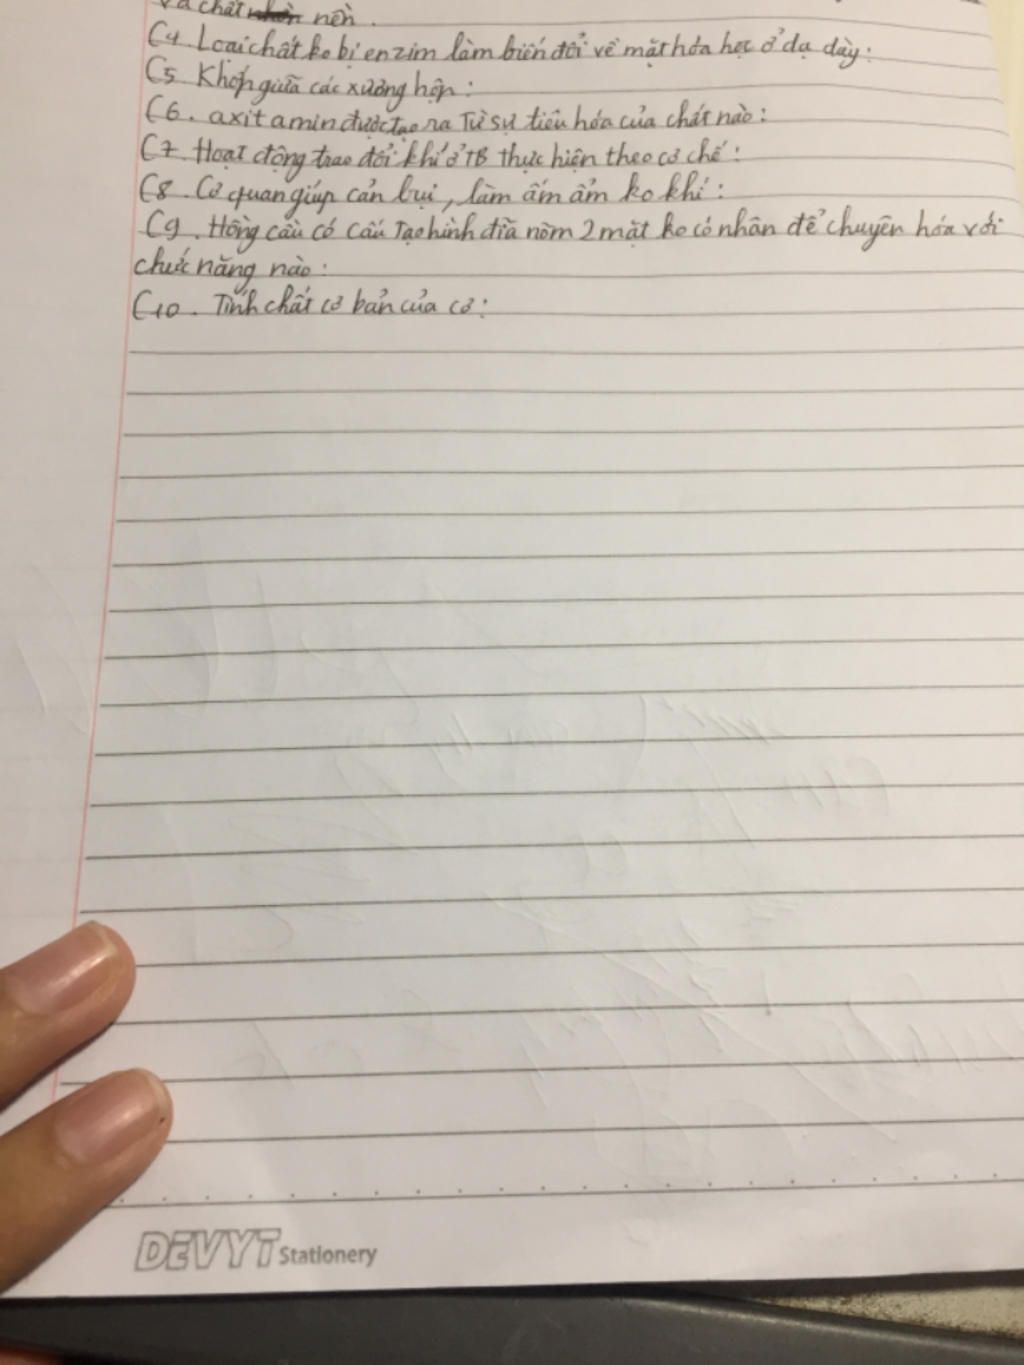 và chất nền.
C4. Loại chất ko bị enzim làm biến đổi về mặt hóa học ở dạ dày:
C5 Khớp giữa các xương hộp:
C6. axit amin được tạo ra Từ sự tiêu hóa của chất nào:
C7. Hoạt động trao đổi khí ở TB thực hiện theo cơ chế:
C8. Cơ quan giúp cản bụi, làm ấm ẩm ko khí:
C9. Hồng cầu có cấu Tạo hình đĩa nõm 2 mặt ko có nhân để chuyên hóa với
chức năng nào:
C10. Tính chất cơ bản của cơ:
DEVYT Stationery